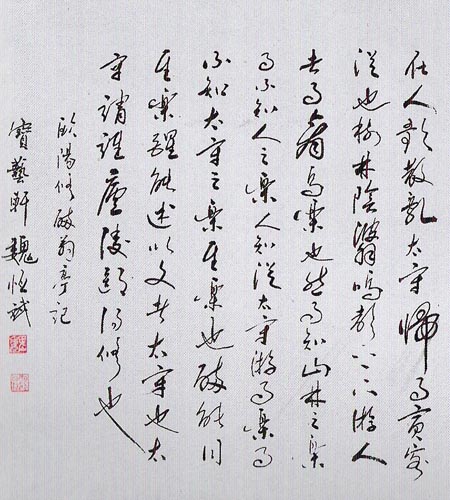 在人影散亂太守歸而賓客
從也樹林陰翳鳴聲上下游人
去而禽鳥樂也然而知山林之樂
而不知人之樂人知從太守游而樂而
不知太守之樂其樂也醉能同
其樂醒能述以文者太守也太
守謂誰廬陵歐陽修也
歐陽修醉翁亭記
寶藝軒 魏